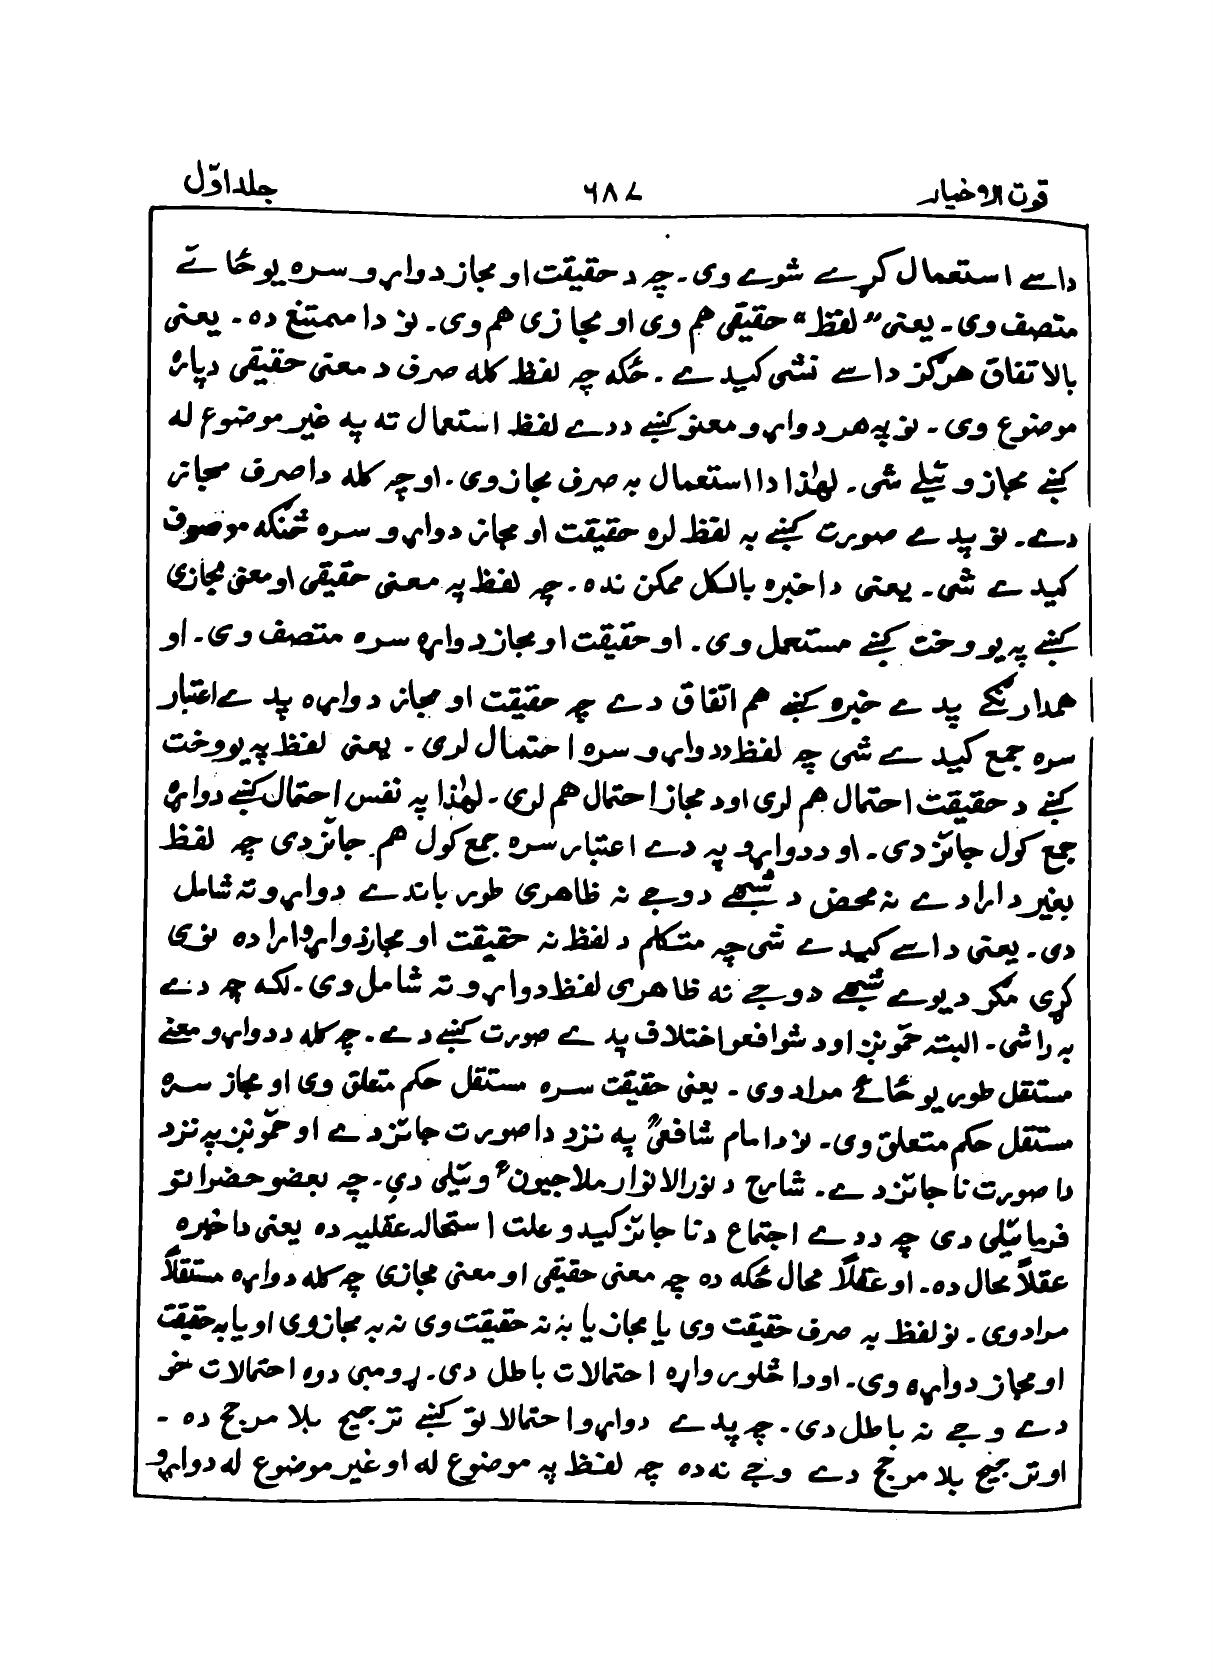 قوت الاخیار ۶۸۷ جلد اوّل
داسے استعمال کړے شوے وی۔ چہ د حقیقت او مجاز دواړو سره یو ځائے
متصف وی۔ یعنی "لفظ" حقیقی هم وی او مجازی هم وی۔ نو دا ممتنع ده۔ یعنی
بالاتفاق هرګز داسے نشی کیدے۔ ځکه چہ لفظ کله صرف د معنی حقیقی دپاره
موضوع وی۔ نو په هر دواړو معنو کښے ددے لفظ استعمال ته په غیر موضوع له
کښے مجاز وئیلے شی۔ لهٰذا دا استعمال به صرف مجاز وی۔ او چہ کله دا صرف مجاز
دے۔ نو پدے صورت کښے به لفظ لره حقیقت او مجاز دواړو سره څنګه موصوف
کیدے شی۔ یعنی دا خبره بالکل ممکن نده۔ چہ لفظ په معنی حقیقی او معنی مجازی
کښے په یو وخت کښے مستعمل وی۔ او حقیقت او مجاز دواړه سره متصف وی۔ او
همدارنګے پدے خبره کښے هم اتفاق دے چہ حقیقت او مجاز دواړه پدے اعتبار
سره جمع کیدے شی چہ لفظ ددواړو سره احتمال لری۔ یعنی لفظ په یو وخت
کښے د حقیقت احتمال هم لری او د مجاز احتمال هم لری۔ لهٰذا په نفس احتمال کښے دواړه
جمع کول جائز دی۔ او ددواړو په دے اعتبار سره جمع کول هم جائز دی چہ لفظ
بغیر د ارادے نه محض د شبهے دوجے نه ظاهری طور باندے دواړو ته شامل
دی۔ یعنی داسے کیدے شی چہ متکلم د لفظ نه حقیقت او مجاز دواړو اراده نوی
کړی مګر د یوے شبهے دوجے نه ظاهری لفظ دواړو ته شامل وی۔ لکه چہ دے
به راشی۔ البته حمونږ او د شوافعو اختلاف پدے صورت کښے دے۔ چہ کله ددواړو معنے
مستقل طور یو ځائے مراد وی۔ یعنی حقیقت سره مستقل حکم متعلق وی او مجاز سره
مستقل حکم متعلق وی۔ نو دامام شافعیؒ په نزد دا صورت جائز دے او حمونږ په نزد
دا صورت ناجائز دے۔ شارح د نورالانوار ملاجیونؒ وئیلی دی۔ چہ بعضو حضراتو
فرمائیلی دی چہ ددے اجتماع د ناجائز کیدو علت استحاله عقلیه ده یعنی دا خبره
عقلاً محال ده۔ او عقلاً محال ځکه ده چہ معنی حقیقی او معنی مجازی چہ کله دواړه مستقلاً
مراد وی۔ نو لفظ به صرف حقیقت وی یا مجاز یا به نه حقیقت وی نه به مجاز وی او یا به حقیقت
او مجاز دواړه وی۔ او دا څلور واړه احتمالات باطل دی۔ ړومبی دوه احتمالات خو
دے وجے نه باطل دی۔ چہ پدے دواړو احتمالاتو کښے ترجیح بلا مرجح ده۔
او ترجیح بلا مرجح دے وجے نه ده چہ لفظ په موضوع له او غیر موضوع له دواړو